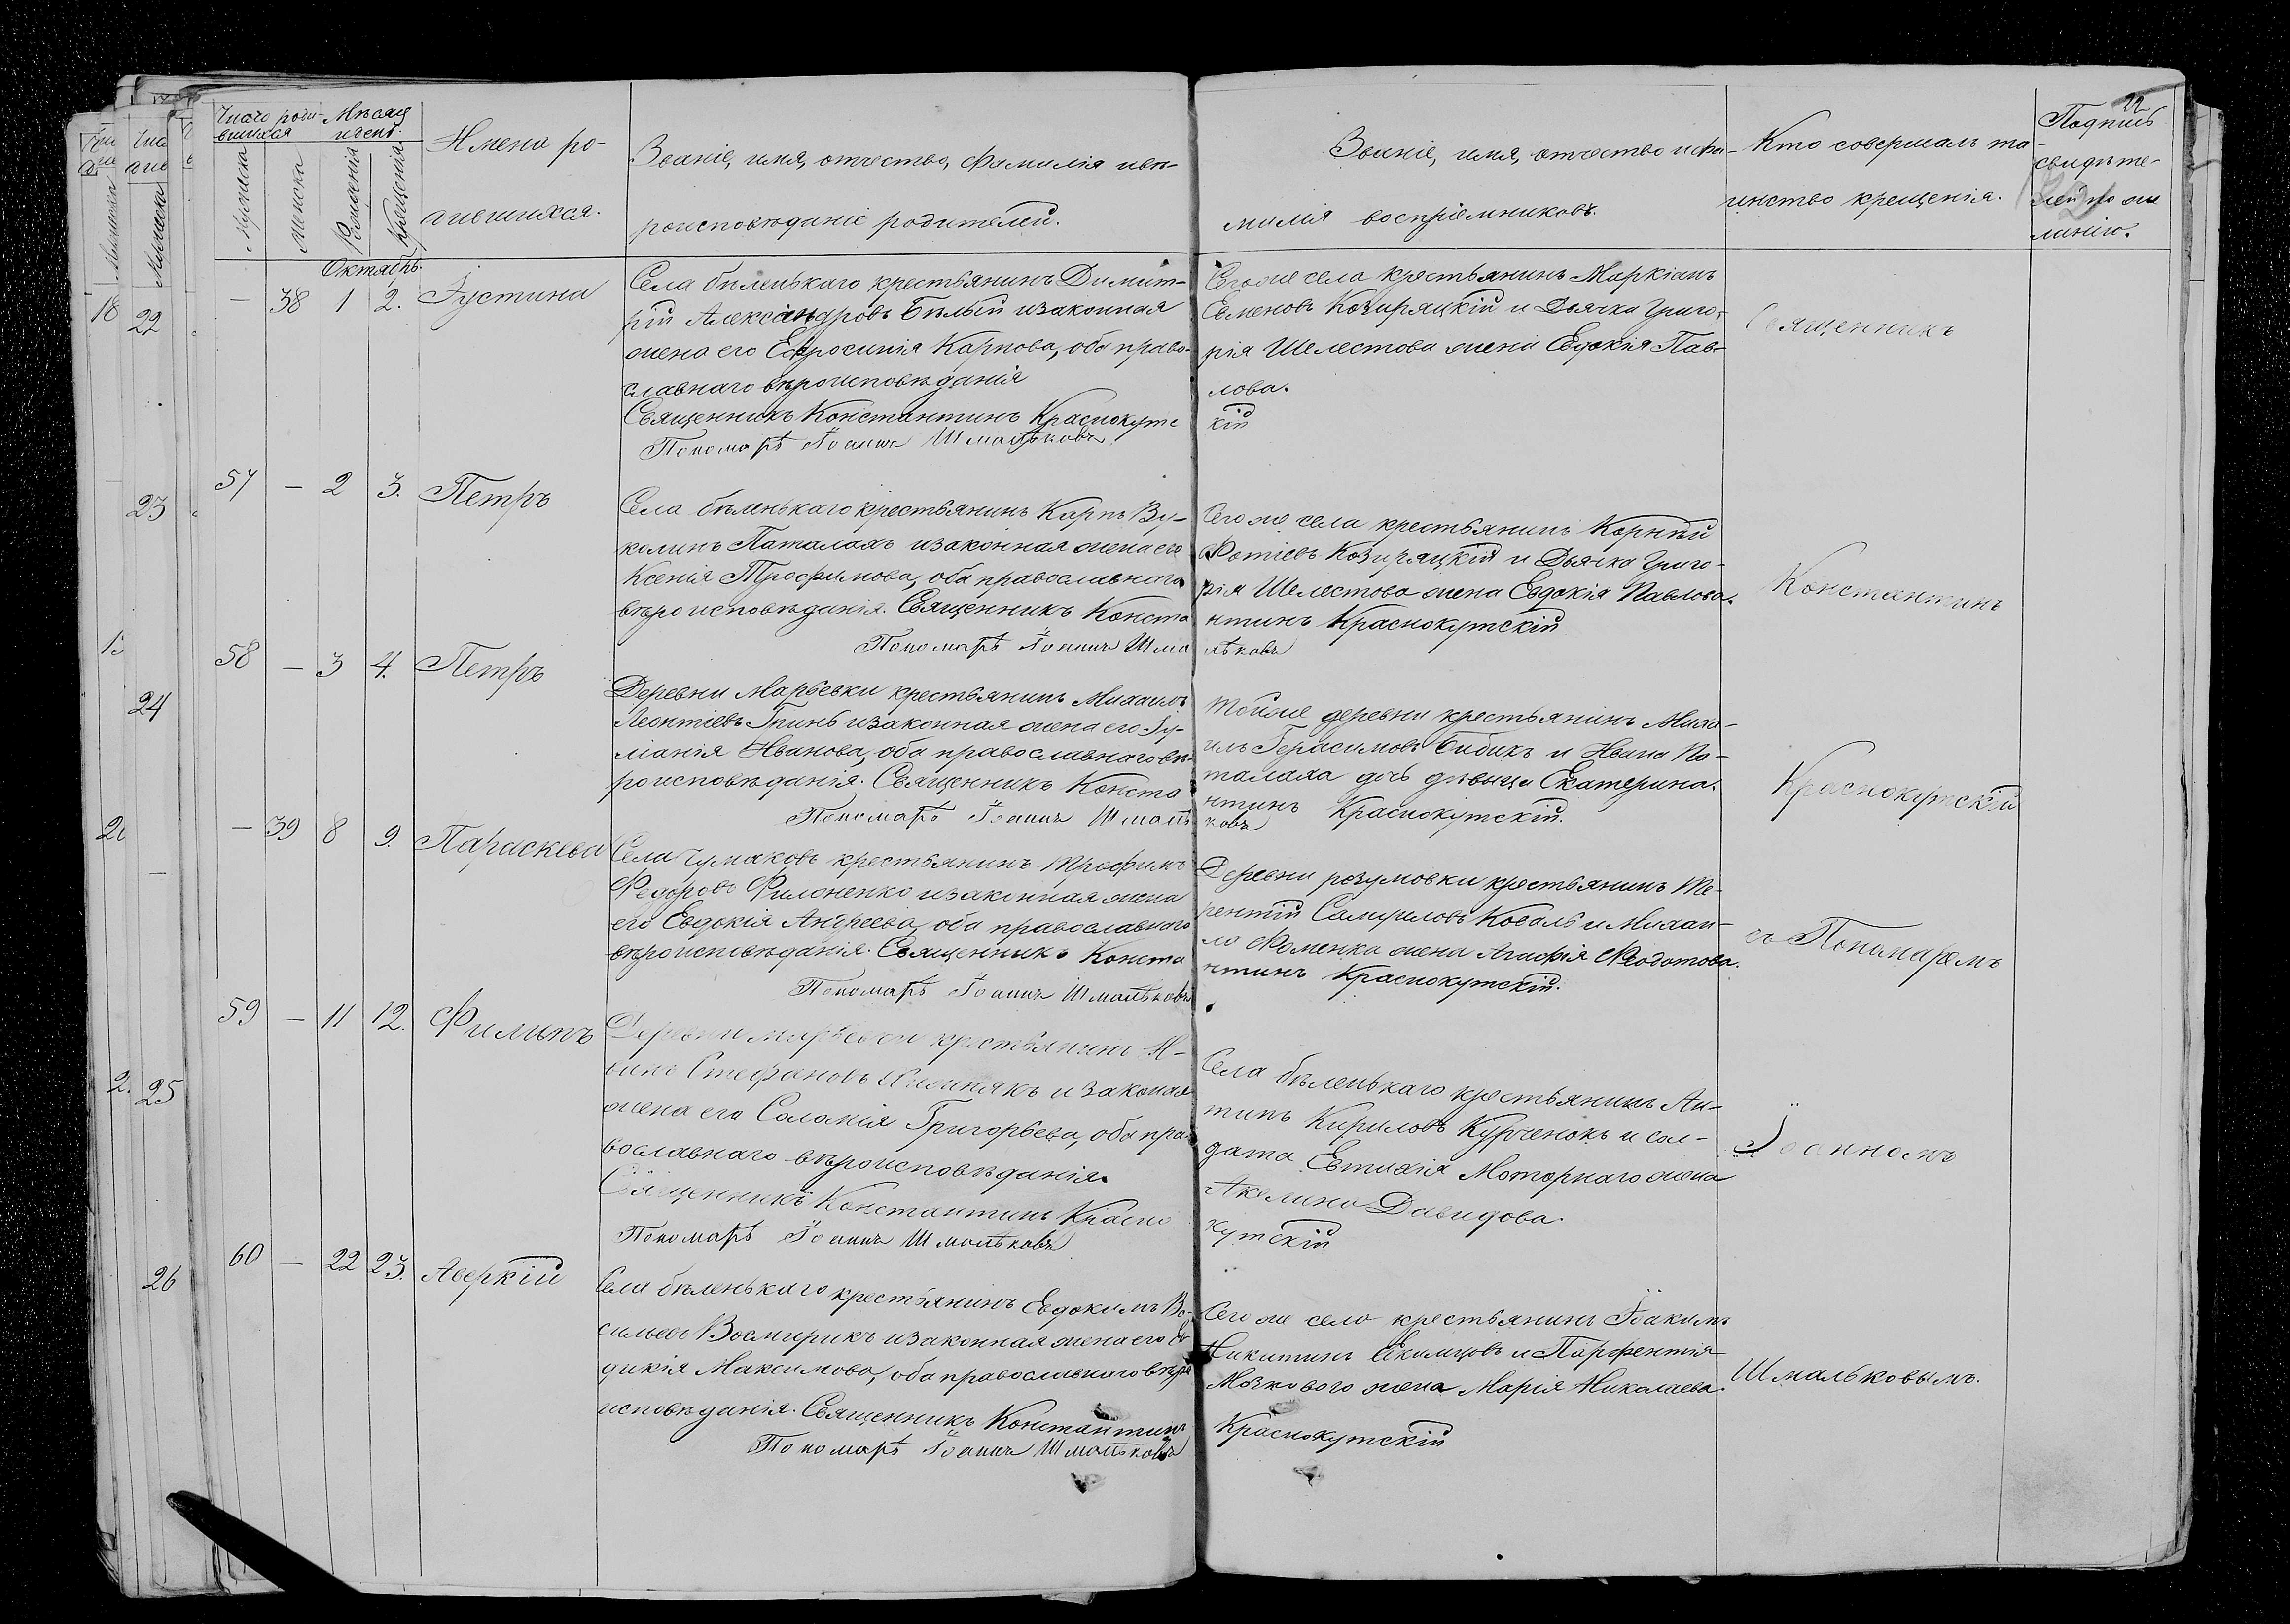 22
Число роди-
вшихся
Мѣсяц
и день.
Мужеска
Женска
Рожденія
Крещенія
Имена ро-
дившихся.
Званіе, имя, отчество, фамилія и вѣ-
роисповѣданіе родителей.
Званіе, имя, отчество и фа-
милія воспріемниковъ.
Кто совершалъ та-
инство крещенія.
Подпись
свидѣте-
лей по же
ланію.
Октябрь.
— 38 1 2. Іустина
Села биленькаго крестьянинъ Димит-
рій Александровъ Бѣлый и законная
жена его Евфросинія Карпова, оба право-
славнаго вѣроисповѣданія
Священникъ Константинъ Краснокутс
Пономарь Іоаннъ Шмальковъ
Сего же села крестьянинъ Маркіанъ
Семеновъ Козиряцкій и Дьячка Григо-
рія Шелестова жена Евдокія Пав-
лова.
кій
Священникъ
57 — 2 3. Петръ
Села бѣленькаго крестьянинъ Карпъ Ву-
колинъ Паталахъ и законная жена его
Ксенія Трофимова, оба православнаго
вѣроисповѣданія. Священникъ Конста
Пономарь Іоаннъ Шма
Сего же села крестьянинъ Корнѣй
Фотіевъ Козиряцкій и Дьячка Григо-
рія Шелестова жена Евдокія Павлова.
нтинъ Краснокутскій
льковъ
Константинъ
58 — 3 4. Петръ
Деревни Марьевки крестьянинъ Михаилъ
Леонтіевъ Гринь и законная жена его Іу-
ліанія Иванова, оба православнаго вѣ-
роисповѣданія. Священникъ Конста
Пономарь Іоаннъ Шмаль
Тойже деревни крестьянинъ Миха-
илъ Герасимовъ Бибикъ и Ивана Па-
талаха дочь дѣвица Екатерина.
нтинъ Краснокутскій.
ковъ
Краснокутскій
— 39 8 9. Параскева
Села Чумаковъ крестьянинъ Трофимъ
Федоровъ Филоненко и законная жена
его Евдокія Андреева, оба православнаго
вѣроисповѣданія. Священникъ Конста
Пономарь Іоаннъ Шмальковъ
Деревни розумовки крестьянинъ Те-
рентій Самуиловъ Коваль и Михаи-
ла Фоменка жена Агафія Федотова.
нтинъ Краснокутскій.
съ Пономаремъ
59 — 11 12. Филипъ
Деревни марьевки крестьянинъ И-
ванъ Стефановъ и законая
жена его Соломія Григорьева, оба пра-
вославнаго вѣроисповѣданія.
Священникъ Константинъ Красно
Пономарь Іоаннъ Шмальковъ
Села бѣленькаго крестьянинъ Ан-
типъ Кириловъ Курченокъ и сол-
дата Евтихія Моторнаго жена
Акилина Давидова.
кутскій
Іоанномъ
60 — 22 23. Аверкій
Села бѣленькаго крестьянинъ Евдокимъ Ва-
сильевъ Восмирикъ и законная жена его Ев
дикія Максимова, оба православнаго вѣро
исповѣданія. Священникъ Константинъ
Пономарь Іоаннъ Шмальковъ
Сего же села крестьянинъ Іоакимъ
Никитинъ и Парфентія
Мозкового жена Марія Николаева.
Краснокутскій
Шмальковымъ.
18
22
23
24
25
26